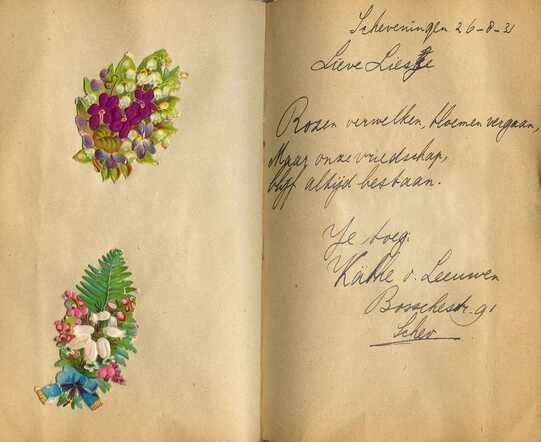 Scheveningen 26-8-31
Lieve Liesje
Rozen verwelken, bloemen vergaan,
Maar onze vriedschap,
blijf altijd bestaan.
Je toeg.
Käthe v. Leeuwen
Bosschestr. 91
Schev